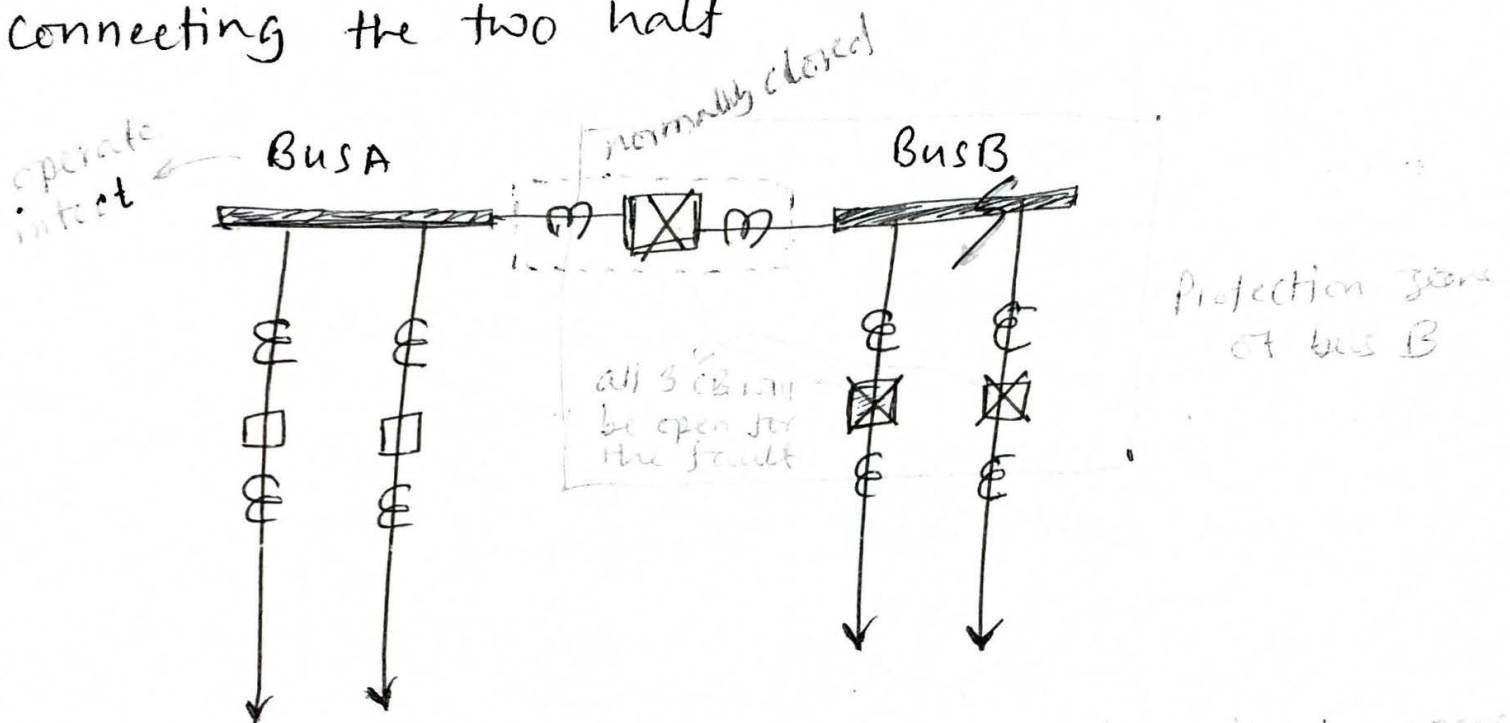 connecting the two half
normally closed
operate
intact
BUSA
BusB
Protection zone
of bus B
all 3 CB will
be open for
the fault